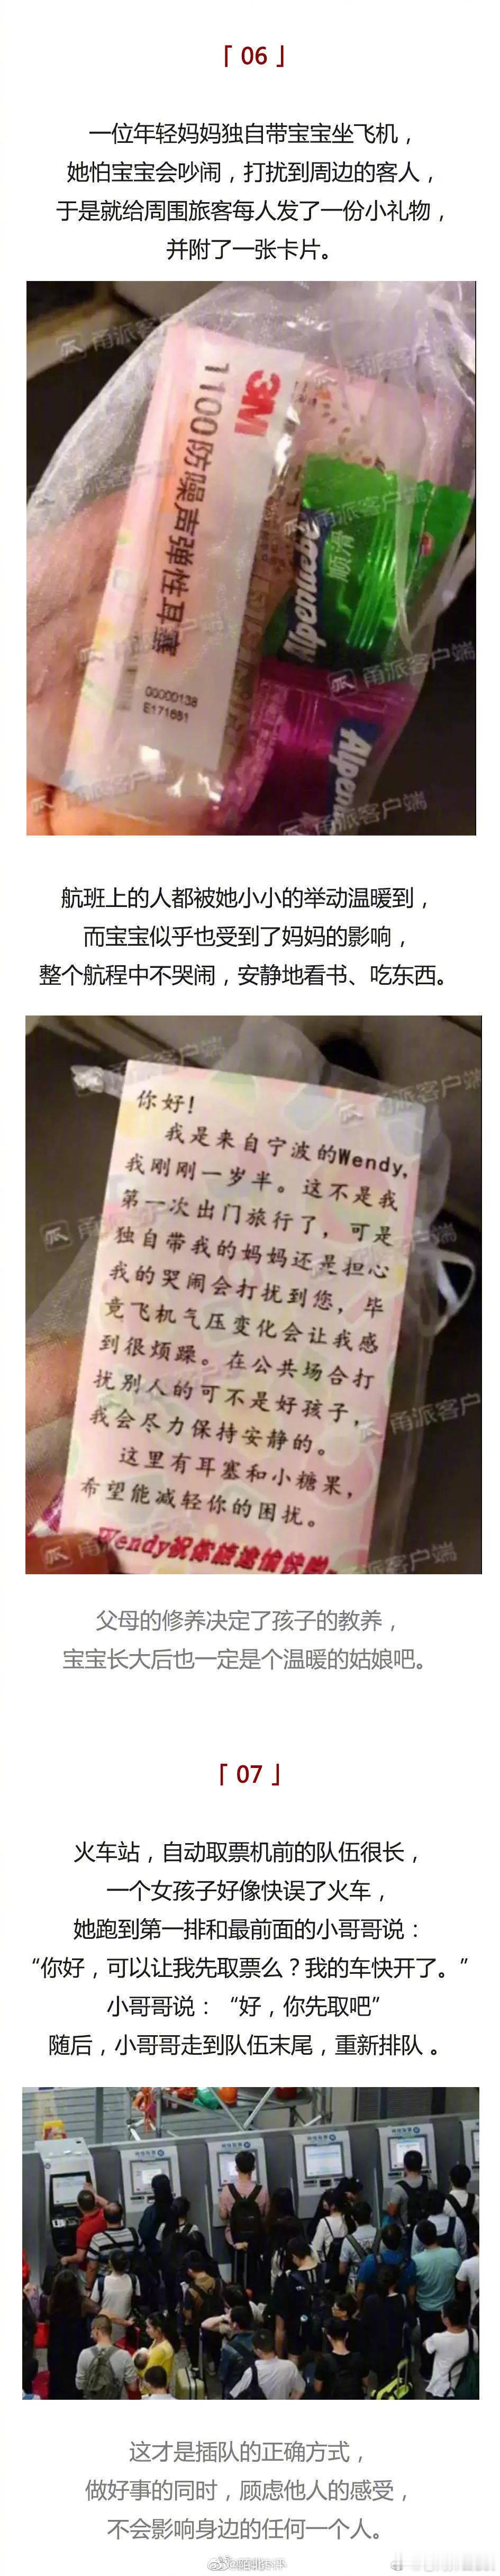 「 06 」
一位年轻妈妈独自带宝宝坐飞机，
她怕宝宝会吵闹，打扰到周边的客人，
于是就给周围旅客每人发了一份小礼物，
并附了一张卡片。
甬派客户端
3M
1100防噪声弹性耳塞
顺滑
Alpen
E171661
甬派客户端
甬派客户端
航班上的人都被她小小的举动温暖到，
而宝宝似乎也受到了妈妈的影响，
整个航程中不哭闹，安静地看书、吃东西。
你好！
我是来自宁波的Wendy，
我刚刚一岁半。这不是我
第一次出门旅行了，可是
独自带我的妈妈还是担心
我的哭闹会打扰到您，毕
竟飞机气压变化会让我感
到很烦躁。在公共场合打
扰别人的可不是好孩子，
我会尽力保持安静的。
这里有耳塞和小糖果，
希望能减轻你的困扰。
Wendy祝你旅途愉快
甬派客户端
父母的修养决定了孩子的教养，
宝宝长大后也一定是个温暖的姑娘吧。
「 07 」
火车站，自动取票机前的队伍很长，
一个女孩子好像快误了火车，
她跑到第一排和最前面的小哥哥说：
“你好，可以让我先取票么？我的车快开了。”
小哥哥说：“好，你先取吧”
随后，小哥哥走到队伍末尾，重新排队 。
这才是插队的正确方式，
做好事的同时，顾虑他人的感受，
不会影响身边的任何一个人。